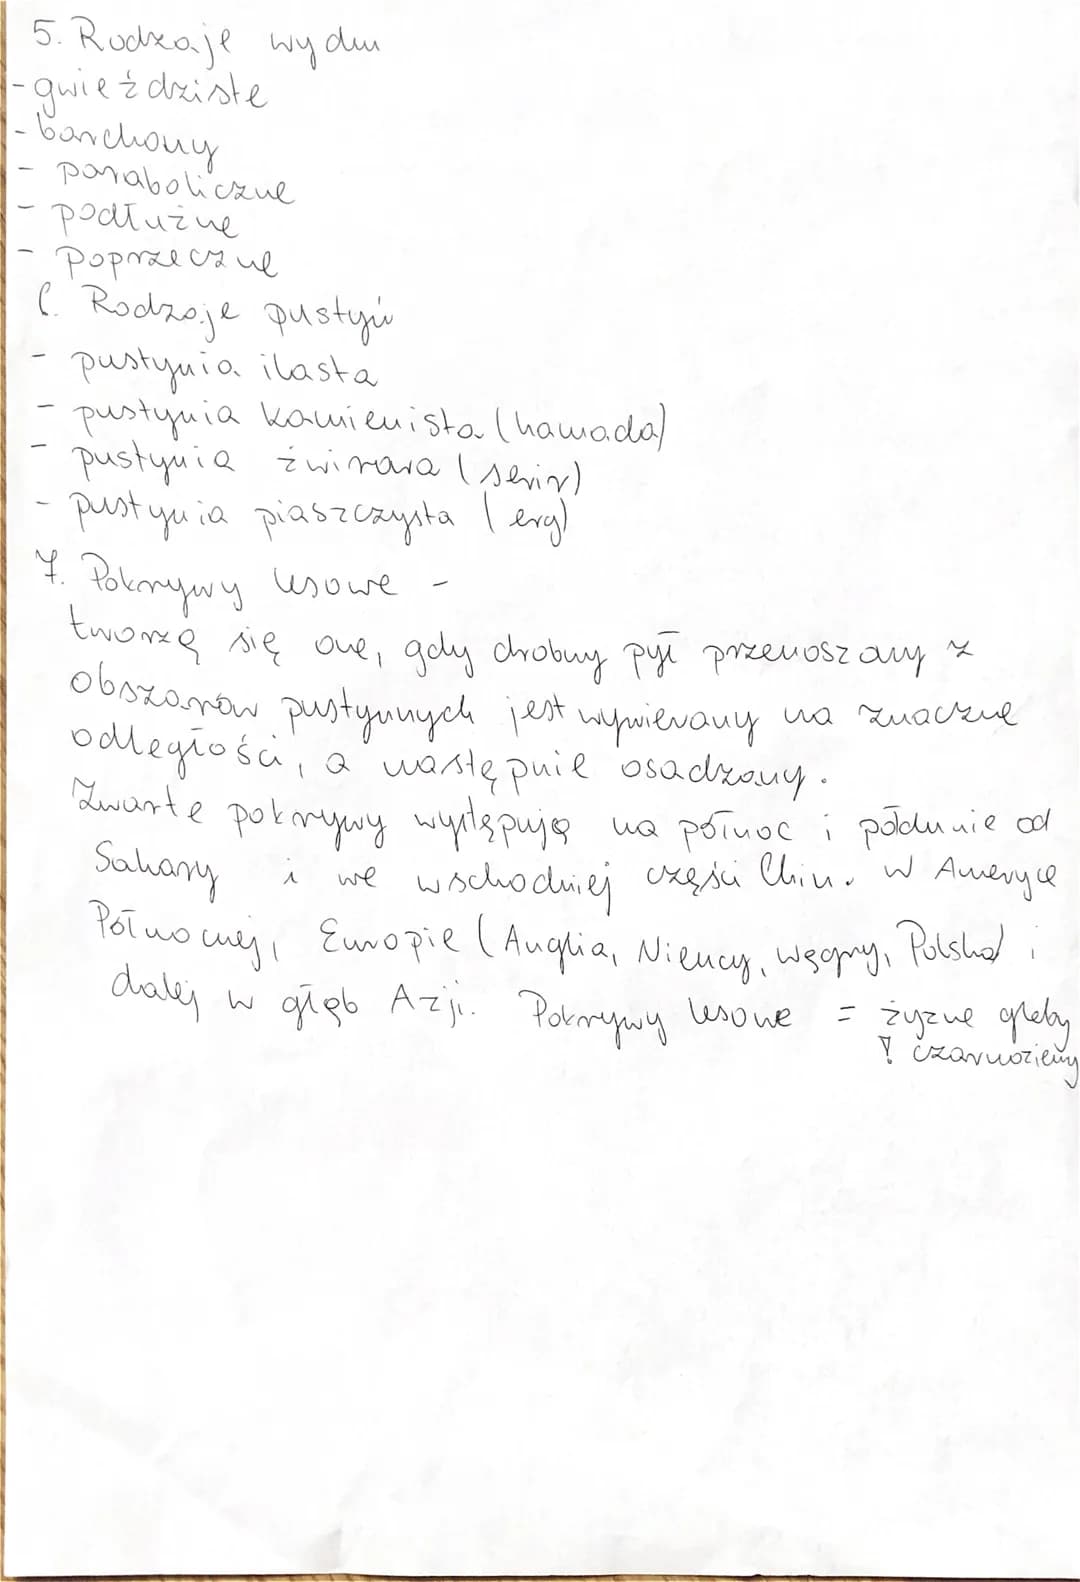 5. Rodzaje wydm
- gwieździste
- barchany
- paraboliczne
- podłużne
- poprzeczne
6. Rodzaje pustyń
- pustynia ilasta
- pustynia kamienista (hamada)
- pustynia żwirowa (serir)
- pustynia piaszczysta (erg)
7. Pokrywy lessowe -
tworzą się one, gdy drobny pył przenoszany z
obszarów pustynnych jest wywiewany na znaczne
odległości, a następnie osadzany.
Zwarte pokrywy występują na północ i południe od
Sahary i we wschodniej części Chin. W Ameryce
Północnej, Europie (Anglia, Niemcy, Węgry, Polska) i
dalej w głąb Azji. Pokrywy lesowe = żyzne gleby
! czarnoziemy